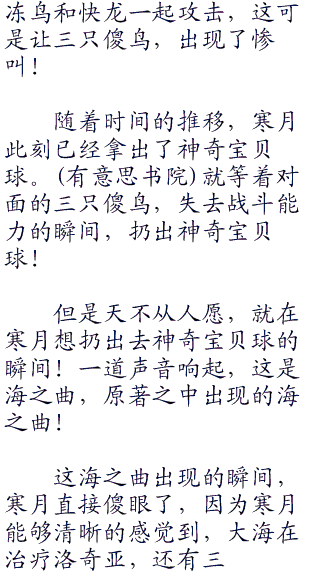 冻鸟和快龙一起攻击，这可
是让三只傻鸟，出现了惨
叫！
随着时间的推移，寒月
此刻已经拿出了神奇宝贝
球。(有意思书院)就等着对
面的三只傻鸟，失去战斗能
力的瞬间，扔出神奇宝贝
球！
但是天不从人愿，就在
寒月想扔出去神奇宝贝球的
瞬间！一道声音响起，这是
海之曲，原著之中出现的海
之曲！
这海之曲出现的瞬间，
寒月直接傻眼了，因为寒月
能够清晰的感觉到，大海在
治疗洛奇亚，还有三